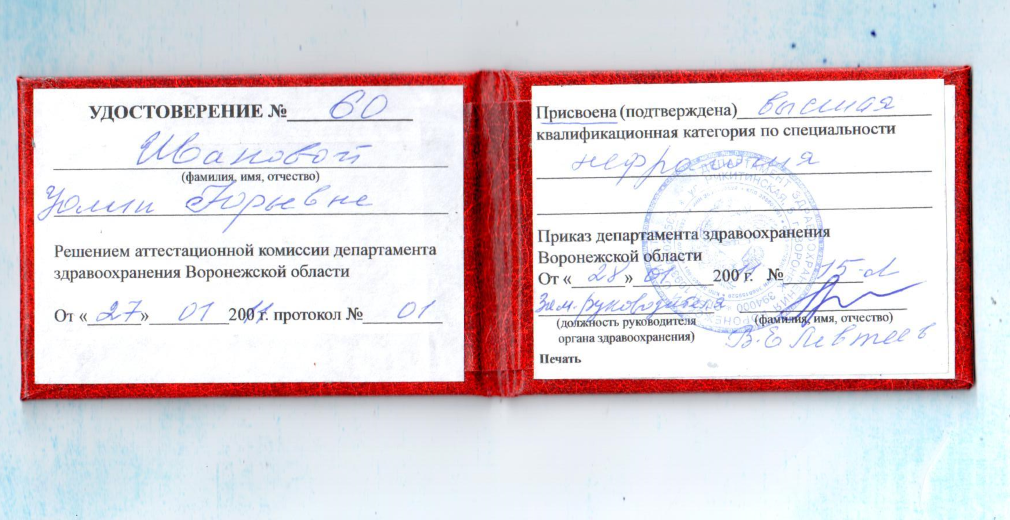 УДОСТОВЕРЕНИЕ № 60
Ивановой
(фамилия, имя, отчество)
Юлии Юрьевне
Решением аттестационной комиссии департамента
здравоохранения Воронежской области
От «27» 01 2011 г. протокол № 01
Присвоена (подтверждена) высшая
квалификационная категория по специальности
нефрология
Приказ департамента здравоохранения
Воронежской области
От «28» 01 2011 г. № 15-л
Зам. руководителя
(должность руководителя (фамилия, имя, отчество)
органа здравоохранения)
Печать